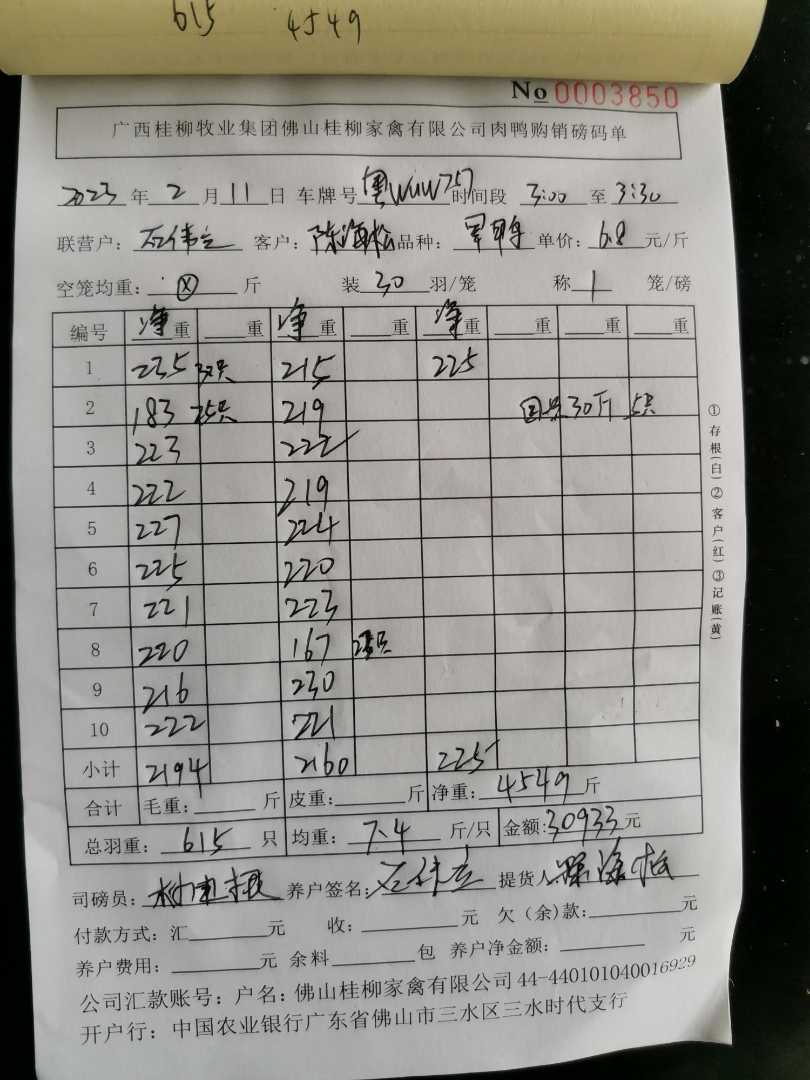 615 4549
No 0003850
广西桂柳牧业集团佛山桂柳家禽有限公司肉鸭购销磅码单
2023年2月11日 车牌号 粤 时间段 3:00 至 3:30
联营户：石伟立 客户：陈海松 品种： 单价：6.8 元/斤
空笼均重：ⓧ 斤 装 30 羽/笼 称 1 笼/磅
编号 净重 重 净重 重 净重 重 重 重
1 235 32只 215 225
2 183 25只 219 30斤 5只
3 223 222
4 222 219
5 227 224
6 225 220
7 221 223
8 220 167 23只
9 216 230
10 222 221
小计 2194 2160 225
合计 毛重： 斤 皮重： 斤 净重：4549 斤
总羽重：615 只 均重：7.4 斤/只 金额：30933元
司磅员： 养户签名：石伟立 提货人：陈海松
付款方式：汇 元 收： 元 欠（余）款： 元
养户费用： 元 余料 包 养户净金额： 元
公司汇款账号：户名：佛山桂柳家禽有限公司 44-440101040016929
开户行：中国农业银行广东省佛山市三水区三水时代支行
①存根(白)②客户(红)③记账(黄)